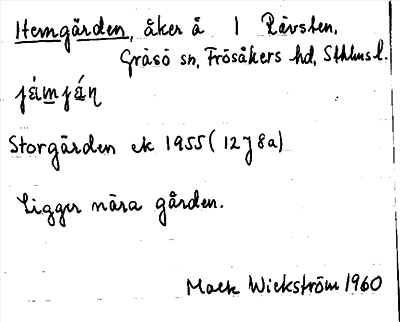 Hemgården, åker å 1 Rävsten,
Gräsö sn, Frösåkers hd, Sthlms l.
Storgården ek 1955 (12 J 8a)
Ligger nära gården.
Wickström 1960